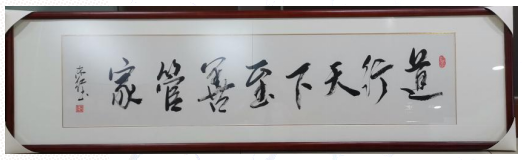 道行天下至善管家